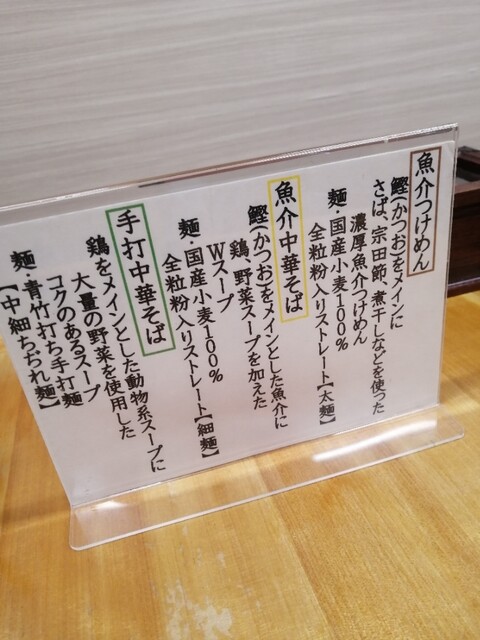 魚介つけめん
鰹(かつお)をメインに
さば、宗田節、煮干しなどを使った
濃厚魚介つけめん
麺・国産小麦100%
全粒粉入りストレート【太麺】
魚介中華そば
鰹(かつお)をメインとした魚介に
鶏、野菜スープを加えた
Wスープ
麺・国産小麦100%
全粒粉入りストレート【細麺】
手打中華そば
鶏をメインとした動物系スープに
大量の野菜を使用した
コクのあるスープ
麺・青竹打ち手打麺
【中細ちぢれ麺】